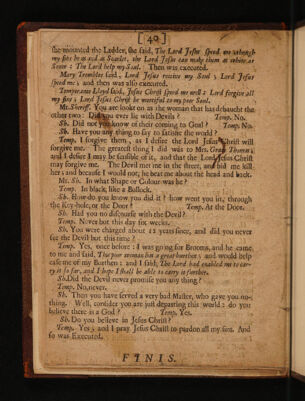 [ 40 ]
she mounted the Ladder, she said, The Lord Jesus speed me; though
my sins be as red as Scarlet, the Lord Jesus can make them as white as
Snow: The Lord help my Soul. Then was executed.
Mary Trembles said, Lord Jesus receive my Soul; Lord Jesus
speed me; and then was also executed.
Temperance Lloyd said, Jesus Christ speed me well: Lord forgive all
my sins; Lord Jesus Christ be merciful to my poor Soul.
Mr. Sheriff. You are lookt on as the woman that has debaucht the
other two: Did you ever lie with Devils? Temp. No.
Sh. Did not you know of their coming to Gaol? Temp. No.
Sh. Have you any thing to say to satisfie the world?
Temp. I forgive them, as I desire the Lord Jesus Christ will
forgive me. The greatest thing I did was to Mrs. Grace Thomas;
and I desire I may be sensible of it, and that the Lord Jesus Christ
may forgive me. The Devil met me in the street, and bid me kill
her; and because I would not, he beat me about the head and back.
Mr. Sh. In what Shape or Colour was he?
Temp. In black, like a Bullock.
Sh. How do you know you did it? how went you in, through
the Key-hole, or the Door? Temp. At the Door.
Sh. Had you no discourse with the Devil?
Temp. Never but this day six weeks.
Sh. You were charged about 12 years since, and did you never
see the Devil but this time?
Temp. Yes, once before: I was going for Brooms, and he came
to me and said, This poor woman has a great burthen; and would help
ease me of my Burthen: and I said, The Lord had enabled me to car-
ry it so far, and I hope I shall be able to carry it further.
Sh. Did the Devil never promise you any thing?
Temp. No, never.
Sh. Then you have served a very bad Master, who gave you no-
thing. Well, consider you are just departing this world: do you
believe there is a God? Temp. Yes.
Sh. Do you believe in Jesus Christ?
Temp. Yes; and I pray Jesus Christ to pardon all my sins. And
so was Executed.
FINIS.